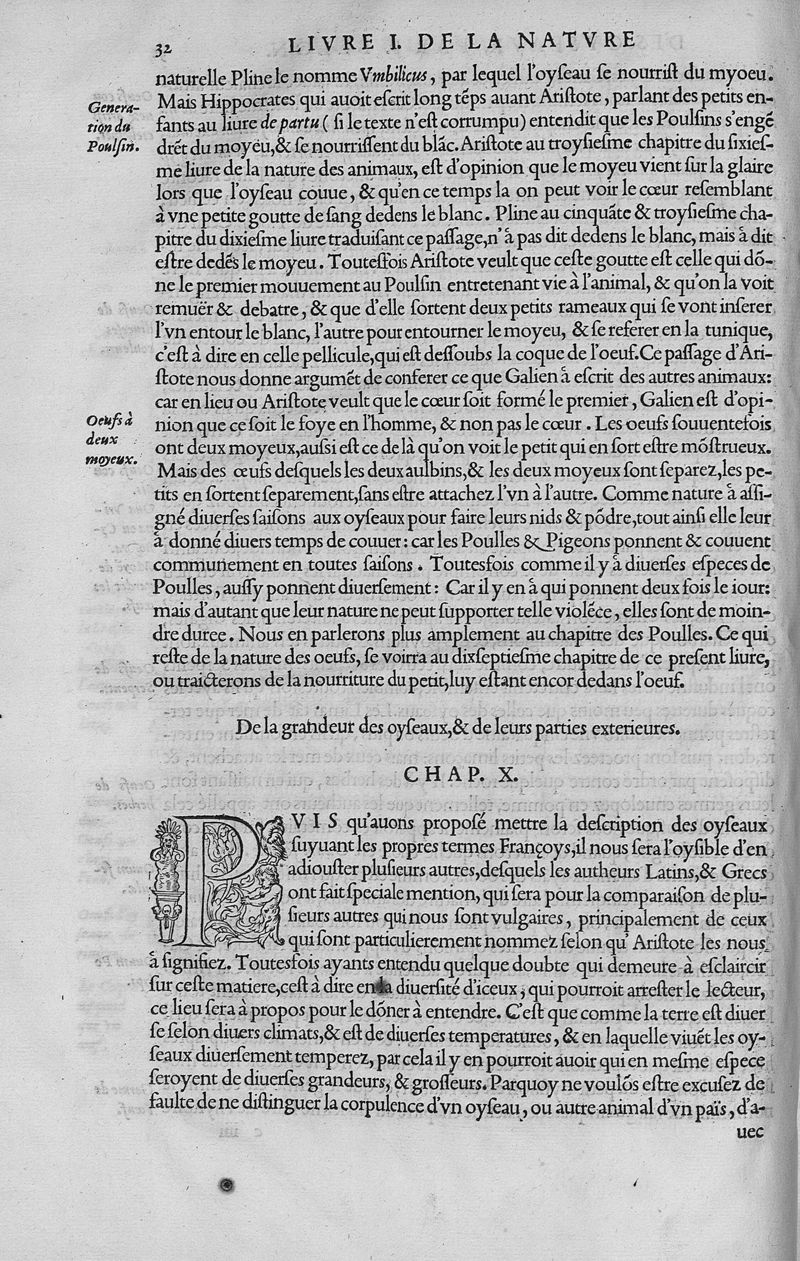 32 LIVRE I. DE LA NATVRE
naturelle Pline le nomme Vmbilicus, par lequel l'oyſeau ſe nourriſt du myoeu.
Genera-
tion du
Poulſin.
Mais Hippocrates qui auoit eſcrit long tẽps auant Ariſtote, parlant des petits en-
fants au liure de partu ( ſi le texte n'eſt corrumpu) entendit que les Poulſins s'engẽ
drẽt du moyeu,& ſe nourriſſent du blãc. Ariſtote au troyſieſme chapitre du ſixieſ-
me liure de la nature des animaux, eſt d'opinion que le moyeu vient ſur la glaire
lors que l'oyſeau couue, & qu'en ce temps la on peut voir le cœur reſemblant
à vne petite goutte de ſang dedens le blanc. Pline au cinquãte & troyſieſme cha-
pitre du dixieſme liure traduiſant ce paſſage,n'à pas dit dedens le blanc, mais à dit
eſtre dedẽs le moyeu. Touteſſois Ariſtote veult que ceſte goutte eſt celle qui dõ-
ne le premier mouuement au Poulſin entretenant vie à l'animal, & qu'on la voit
remuër & debatre, & que d'elle ſortent deux petits rameaux qui ſe vont inſerer
l'vn entour le blanc, l'autre pour entourner le moyeu, & ſe referer en la tunique,
c'eſt à dire en celle pellicule,qui eſt deſſoubs la coque de l'oeuf.Ce paſſage d'Ari-
ſtote nous donne argumẽt de conferer ce que Galien à eſcrit des autres animaux:
car en lieu ou Ariſtote veult que le cœur ſoit formé le premier, Galien eſt d'opi-
Oeufs à
deux
moyeux.
nion que ce ſoit le foye en l'homme, & non pas le cœur. Les oeufs ſouuentefois
ont deux moyeux,auſsi eſt ce de là qu'on voit le petit qui en ſort eſtre mõſtrueux.
Mais des œufs deſquels les deux aulbins,& les deux moyeux ſont ſeparez,les pe-
tits en ſortent ſeparement,ſans eſtre attachez l'vn à l'autre. Comme nature à aſſi-
gné diuerſes ſaiſons aux oyſeaux pour faire leurs nids & põdre,tout ainſi elle leur
à donné diuers temps de couuer: car les Poulles & Pigeons ponnent & couuent
communement en toutes ſaiſons. Toutesfois comme il y à diuerſes eſpeces de
Poulles, auſſy ponnent diuerſement: Car il y en à qui ponnent deux fois le iour:
mais d'autant que leur nature ne peut ſupporter telle violẽce, elles ſont de moin-
dre duree. Nous en parlerons plus amplement au chapitre des Poulles. Ce qui
reſte de la nature des oeufs, ſe voirra au dixſeptieſme chapitre de ce preſent liure,
ou traicterons de la nourriture du petit,luy eſtant encor dedans l'oeuf.
De la grandeur des oyſeaux,& de leurs parties exterieures.
CHAP. X.
PVIS qu'auons propoſé mettre la deſcription des oyſeaux
ſuyuant les propres termes Françoys,il nous ſera l'oyſible d'en
adiouſter pluſieurs autres,deſquels les autheurs Latins,& Grecs
ont fait ſpeciale mention, qui ſera pour la comparaiſon de plu-
ſieurs autres qui nous ſont vulgaires, principalement de ceux
qui ſont particulierement nommez ſelon qu' Ariſtote les nous
à ſignifiez. Toutesfois ayants entendu quelque doubte qui demeure à eſclaircir
ſur ceſte matiere,ceſt à dire en la diuerſité d'iceux, qui pourroit arreſter le lecteur,
ce lieu ſera à propos pour le dõner à entendre. C'eſt que comme la terre eſt diuer
ſe ſelon diuers climats,& eſt de diuerſes temperatures, & en laquelle viuẽt les oy-
ſeaux diuerſement temperez, par cela il y en pourroit auoir qui en meſme eſpece
ſeroyent de diuerſes grandeurs, & groſſeurs. Parquoy ne voulõs eſtre excuſez de
faulte de ne diſtinguer la corpulence d'vn oyſeau, ou autre animal d'vn païs, d'a-
uec